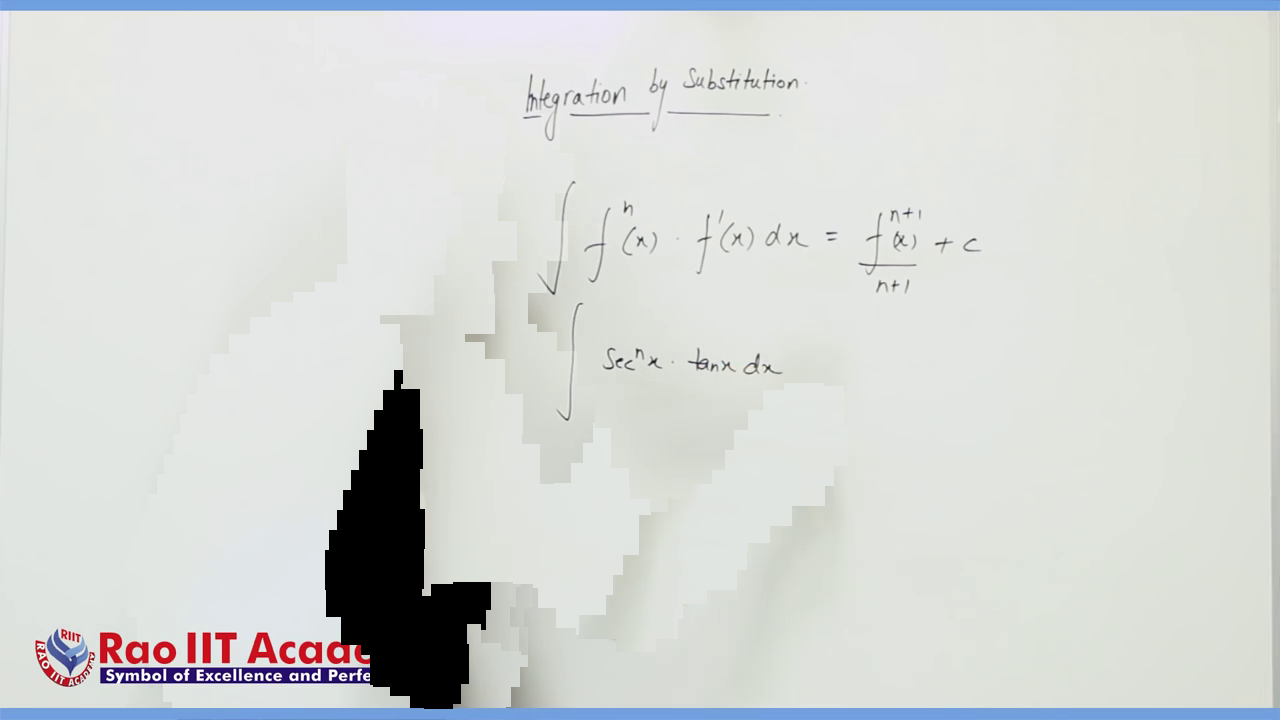 Integration by Substitution.
∫ fⁿ(x) · f'(x) dx = fⁿ⁺¹(x) / n+1 + c
∫ Secⁿx · tanx dx
RIIT
RAO IIT ACADEMY
Rao IIT
Symbol of Excellence and